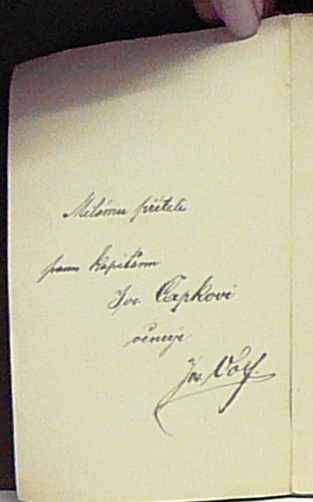 Milému příteli
panu kapitánu
Jos. Čapkovi
věnuje
Jos. Volf.